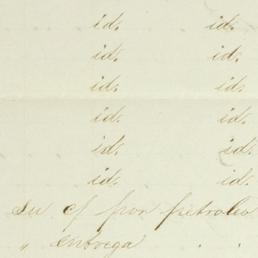 id. id.
id. id.
id. id.
id. id.
id. id.
id. id.
Su c/ por petroleo
„ entrega . .